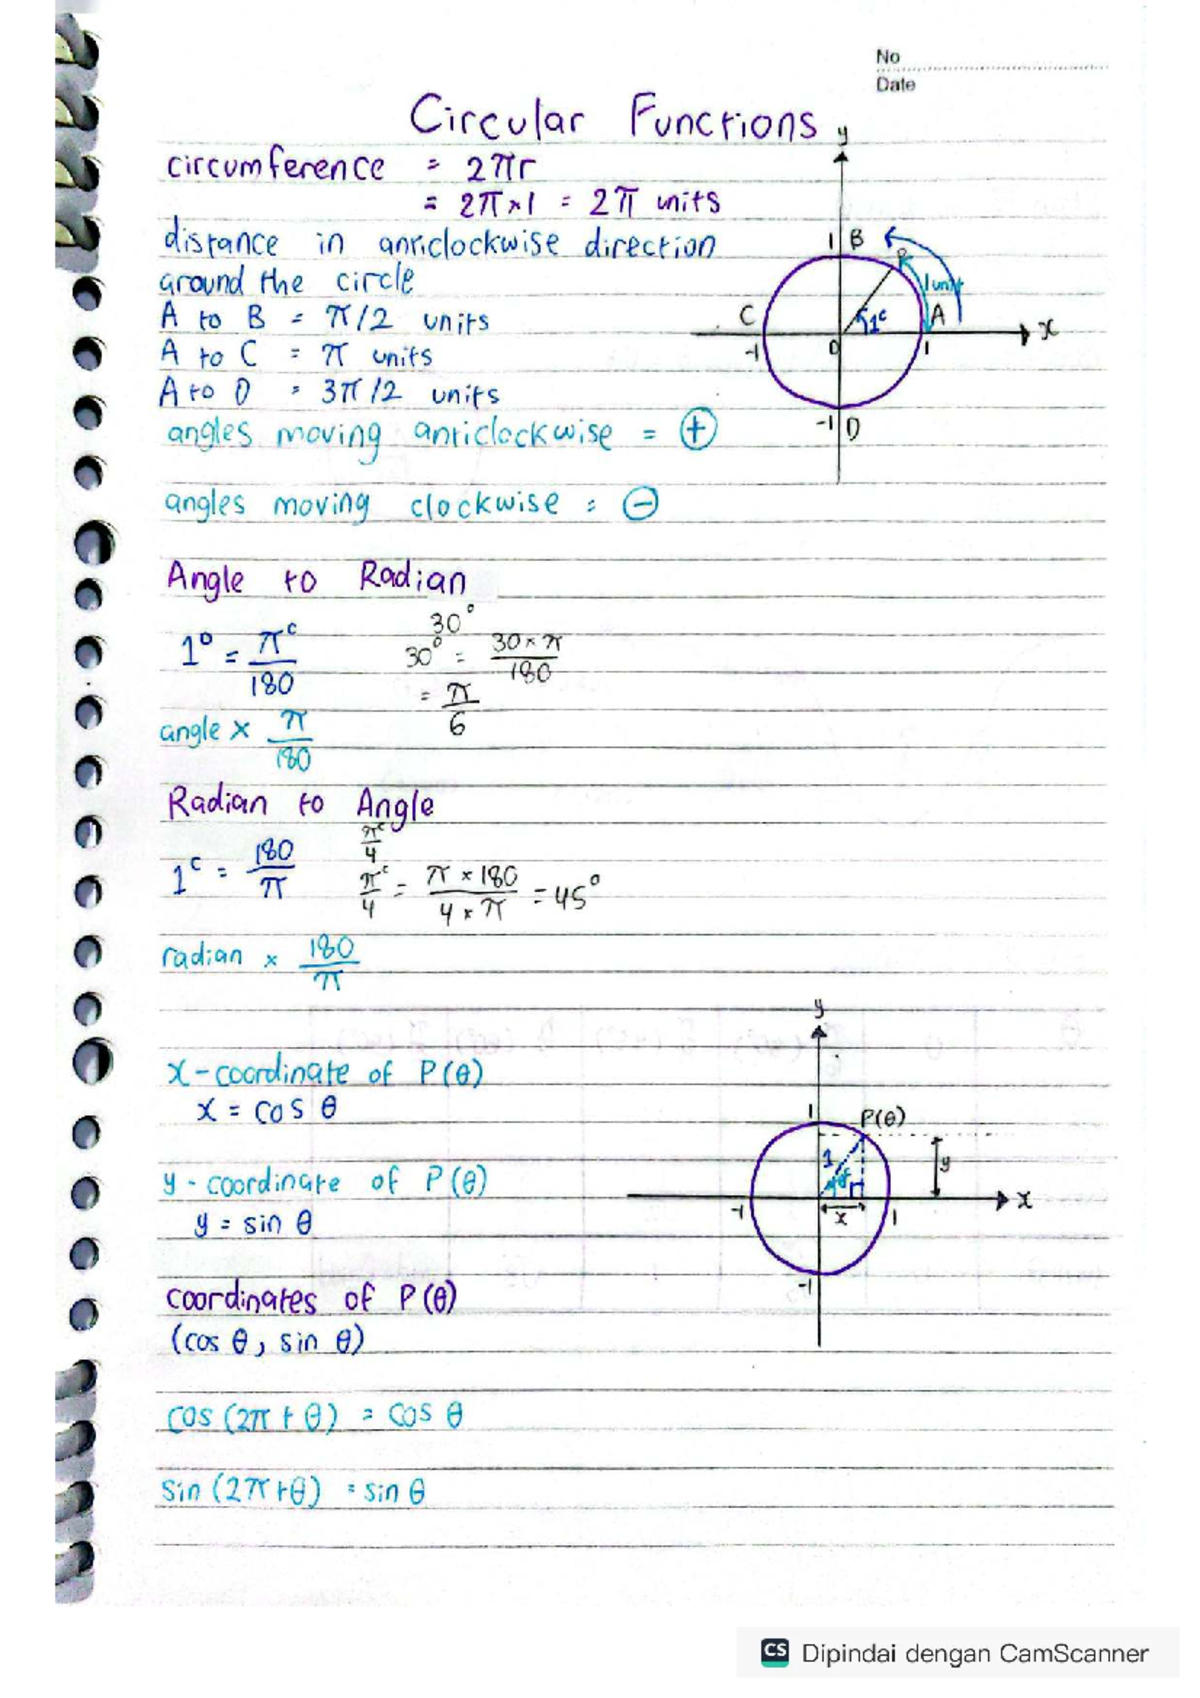 No
Date
Circular Functions
circumference = 2πr
= 2π×1 = 2π units
distance in anticlockwise direction
around the circle
A to B = π/2 units
A to C = π units
A to D = 3π/2 units
angles moving anticlockwise = ⊕
angles moving clockwise = ⊖
y
1 B
P
1 unit
C
1ᶜ
A
x
-1
0
1
-1 D
Angle to Radian
1° = πᶜ/180
30°
30° = 30×π/180
= π/6
angle × π/180
Radian to Angle
πᶜ/4
1ᶜ = 180/π
πᶜ/4 = π×180/4×π = 45°
radian × 180/π
x-coordinate of P(θ)
x = cos θ
y-coordinate of P(θ)
y = sin θ
coordinates of P(θ)
(cos θ, sin θ)
y
1
P(θ)
1
θᶜ
y
x
-1
x
1
-1
cos (2π+θ) = cos θ
sin (2π+θ) = sin θ
CS Dipindai dengan CamScanner